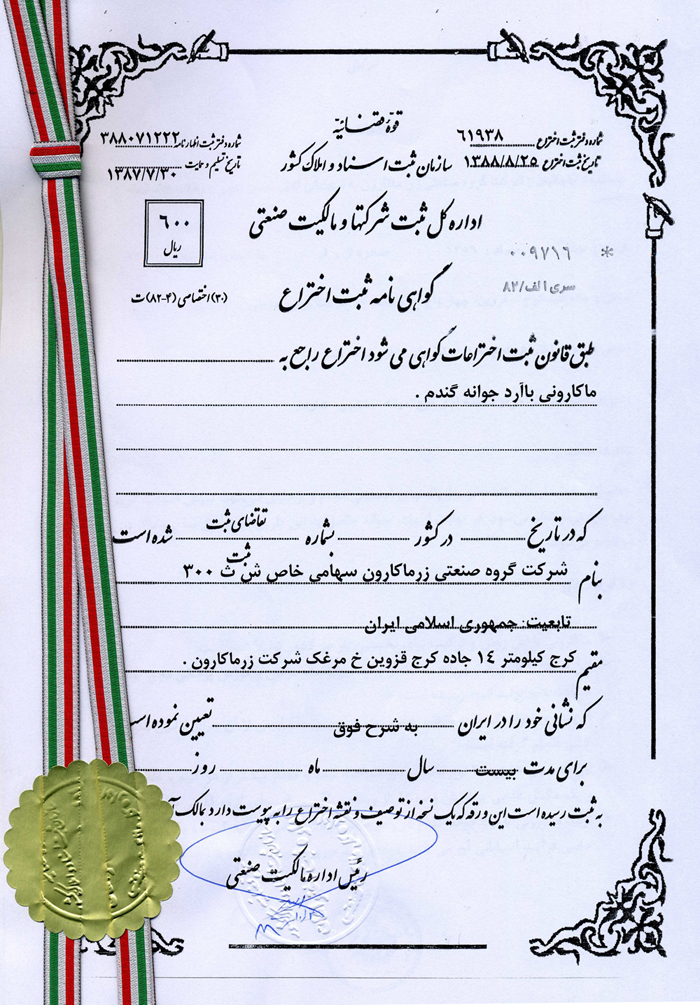 قوهٔ قضائیه
شماره دفتر ثبت اختراع ۶۱۹۳۸
شماره دفتر ثبت اظهارنامه ۳۸۸۰۷۱۲۲۲
تاریخ ثبت اختراع ۱۳۸۸/۸/۲۵
سازمان ثبت اسناد و املاک کشور
تاریخ تسلیم و حمایت ۱۳۸۷/۷/۳۰
اداره کل ثبت شرکتها و مالکیت صنعتی
۶۰۰
ریال
۰۰۹۷۱۶ *
سری الف/۸۲
گواهی نامه ثبت اختراع
(۳۰) اختصاصی (۴-۸۲) ت
طبق قانون ثبت اختراعات گواهی می شود اختراع راجع به
ماکارونی باآرد جوانه گندم .
که در تاریخ در کشور بشماره تقاضای ثبت شده است
ثبت
بنام شرکت گروه صنعتی زرماکارون سهامی خاص ش ث ۳۰۰
تابعیت: جمهوری اسلامی ایران
مقیم کرج کیلومتر ۱۴ جاده کرج قزوین خ مرغک شرکت زرماکارون .
که نشانی خود را در ایران به شرح فوق تعیین نموده اس
برای مدت بیست سال ماه روز
به ثبت رسیده است این ورقه که یک نسخه از توصیف و نقشه اختراع را به پیوست دارد بمالک آ
رئیس اداره مالکیت صنعتی